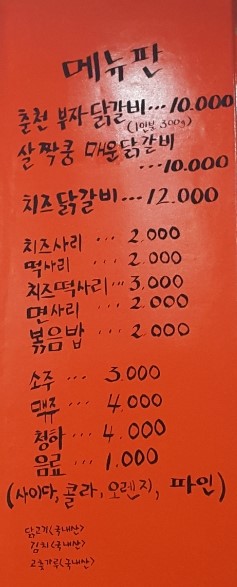 메뉴판
춘천 부자 닭갈비···10.000
(1인분 300g)
살짝쿵 매운닭갈비
···10.000
치즈닭갈비···12.000
치즈사리 ··· 2.000
떡사리 ··· 2.000
치즈떡사리···3.000
면사리 ··· 2.000
볶음밥 ··· 2.000
소주 ··· 3.000
맥주 ··· 4.000
청하 ··· 4.000
음료 ··· 1.000
(사이다, 콜라, 오렌지, 파인)
닭고기<국내산>
김치<국내산>
고춧가루<국내산>